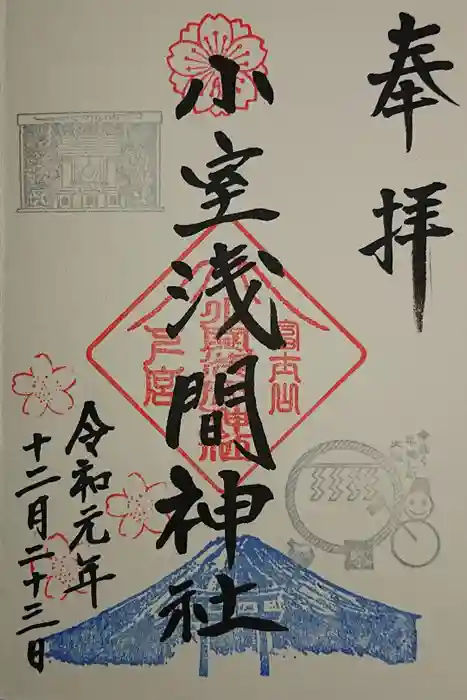 奉拝
小室浅間神社
令和元年
十二月二十三日
富士山
下宮